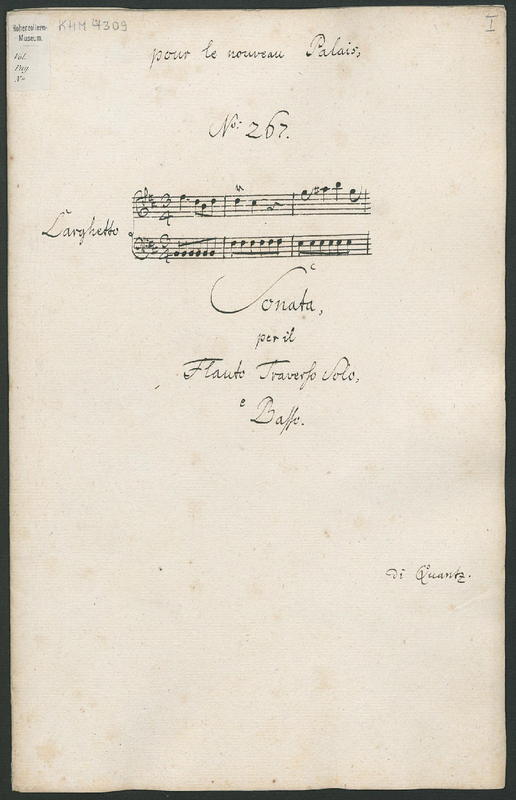 Hohenzollern-
Museum.
Vol.
Pag.
No
KHM 4309
I
pour le nouveau Palais,
No: 267.
Larghetto
3
4
3
4
Sonata,
per il
Flauto Traverso Solo,
e
Basso.
di Quantz.